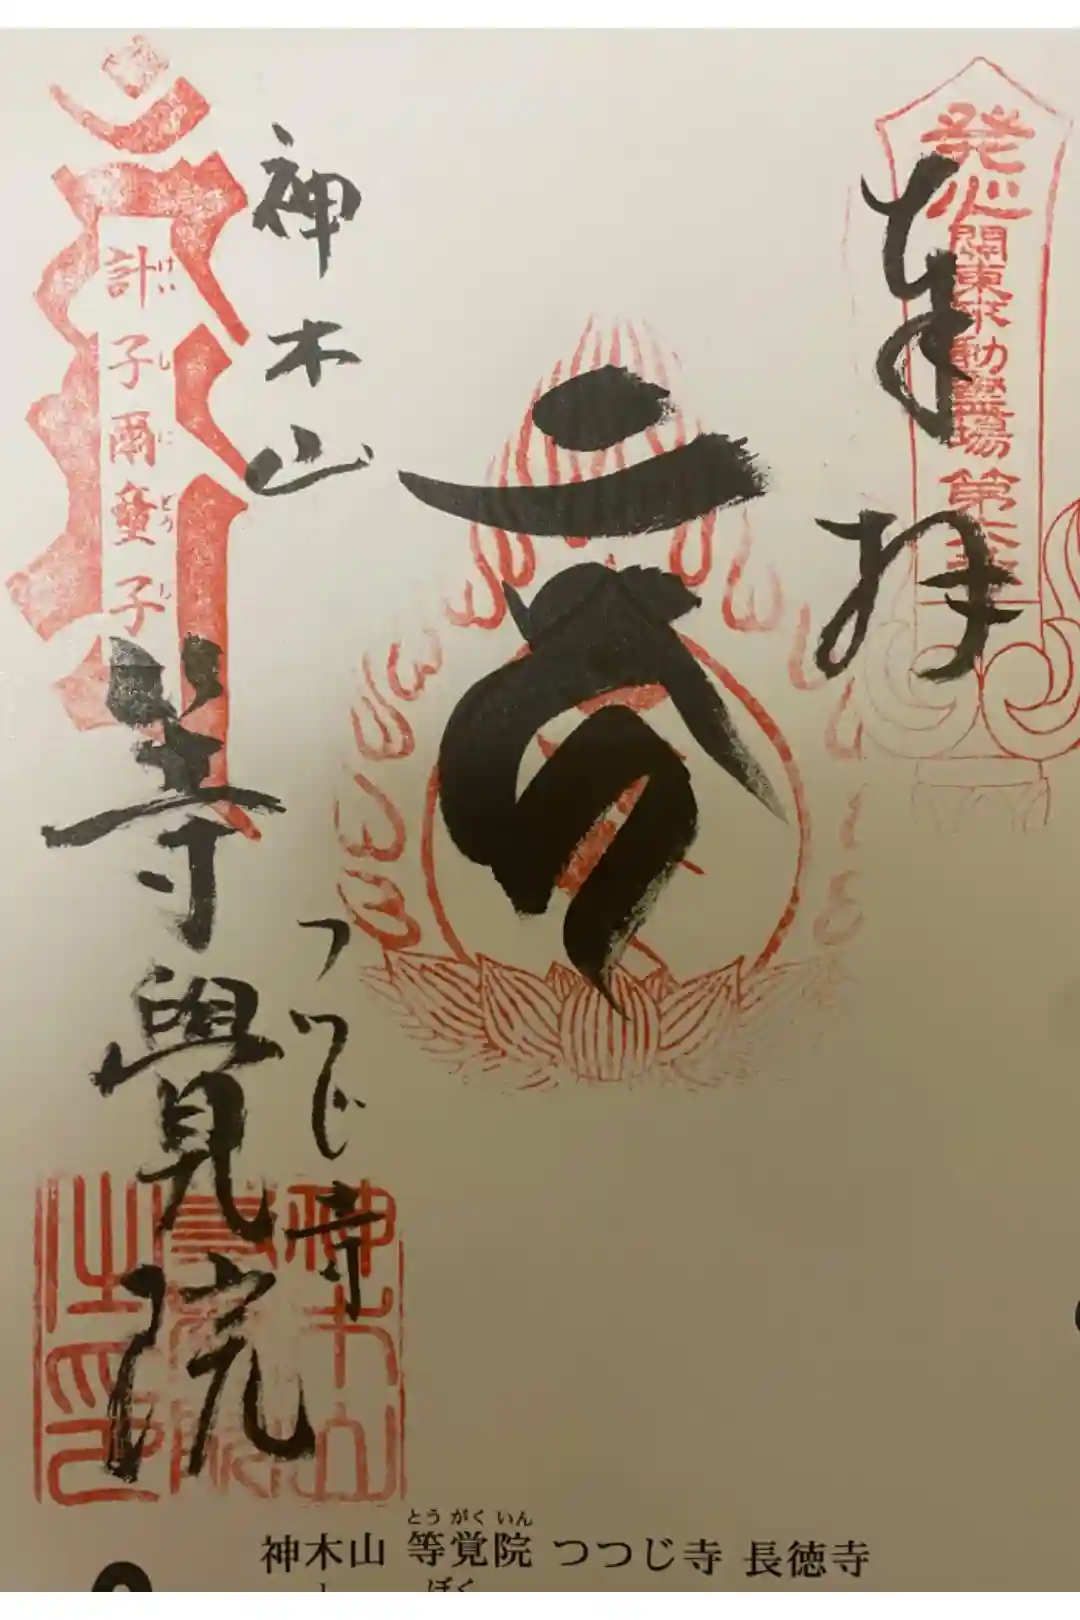 奉拝
発心
関東不動霊場
第六番
神木山
等覺院
つつじ寺
計子爾童子
けいしにどうじ
神木山
之印
とうがくいん
神木山 等覚院 つつじ寺 長徳寺
ぼく